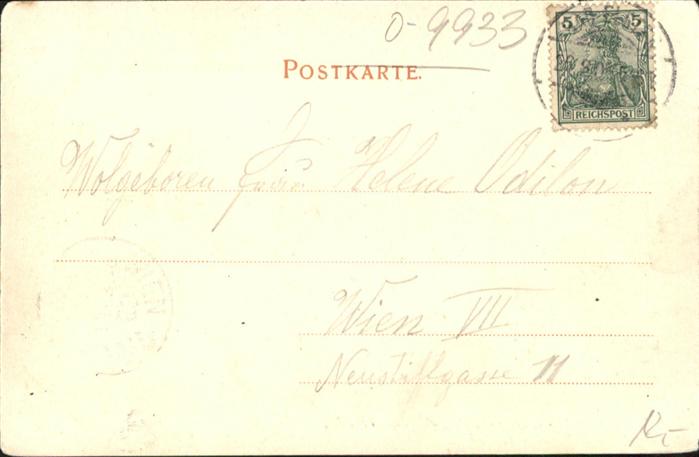 0-9933
5 5
REICHSPOST
POSTKARTE.
Wolgeboren Frau Helene Odilon
WIEN
Wien VII
Neustiftgasse 11